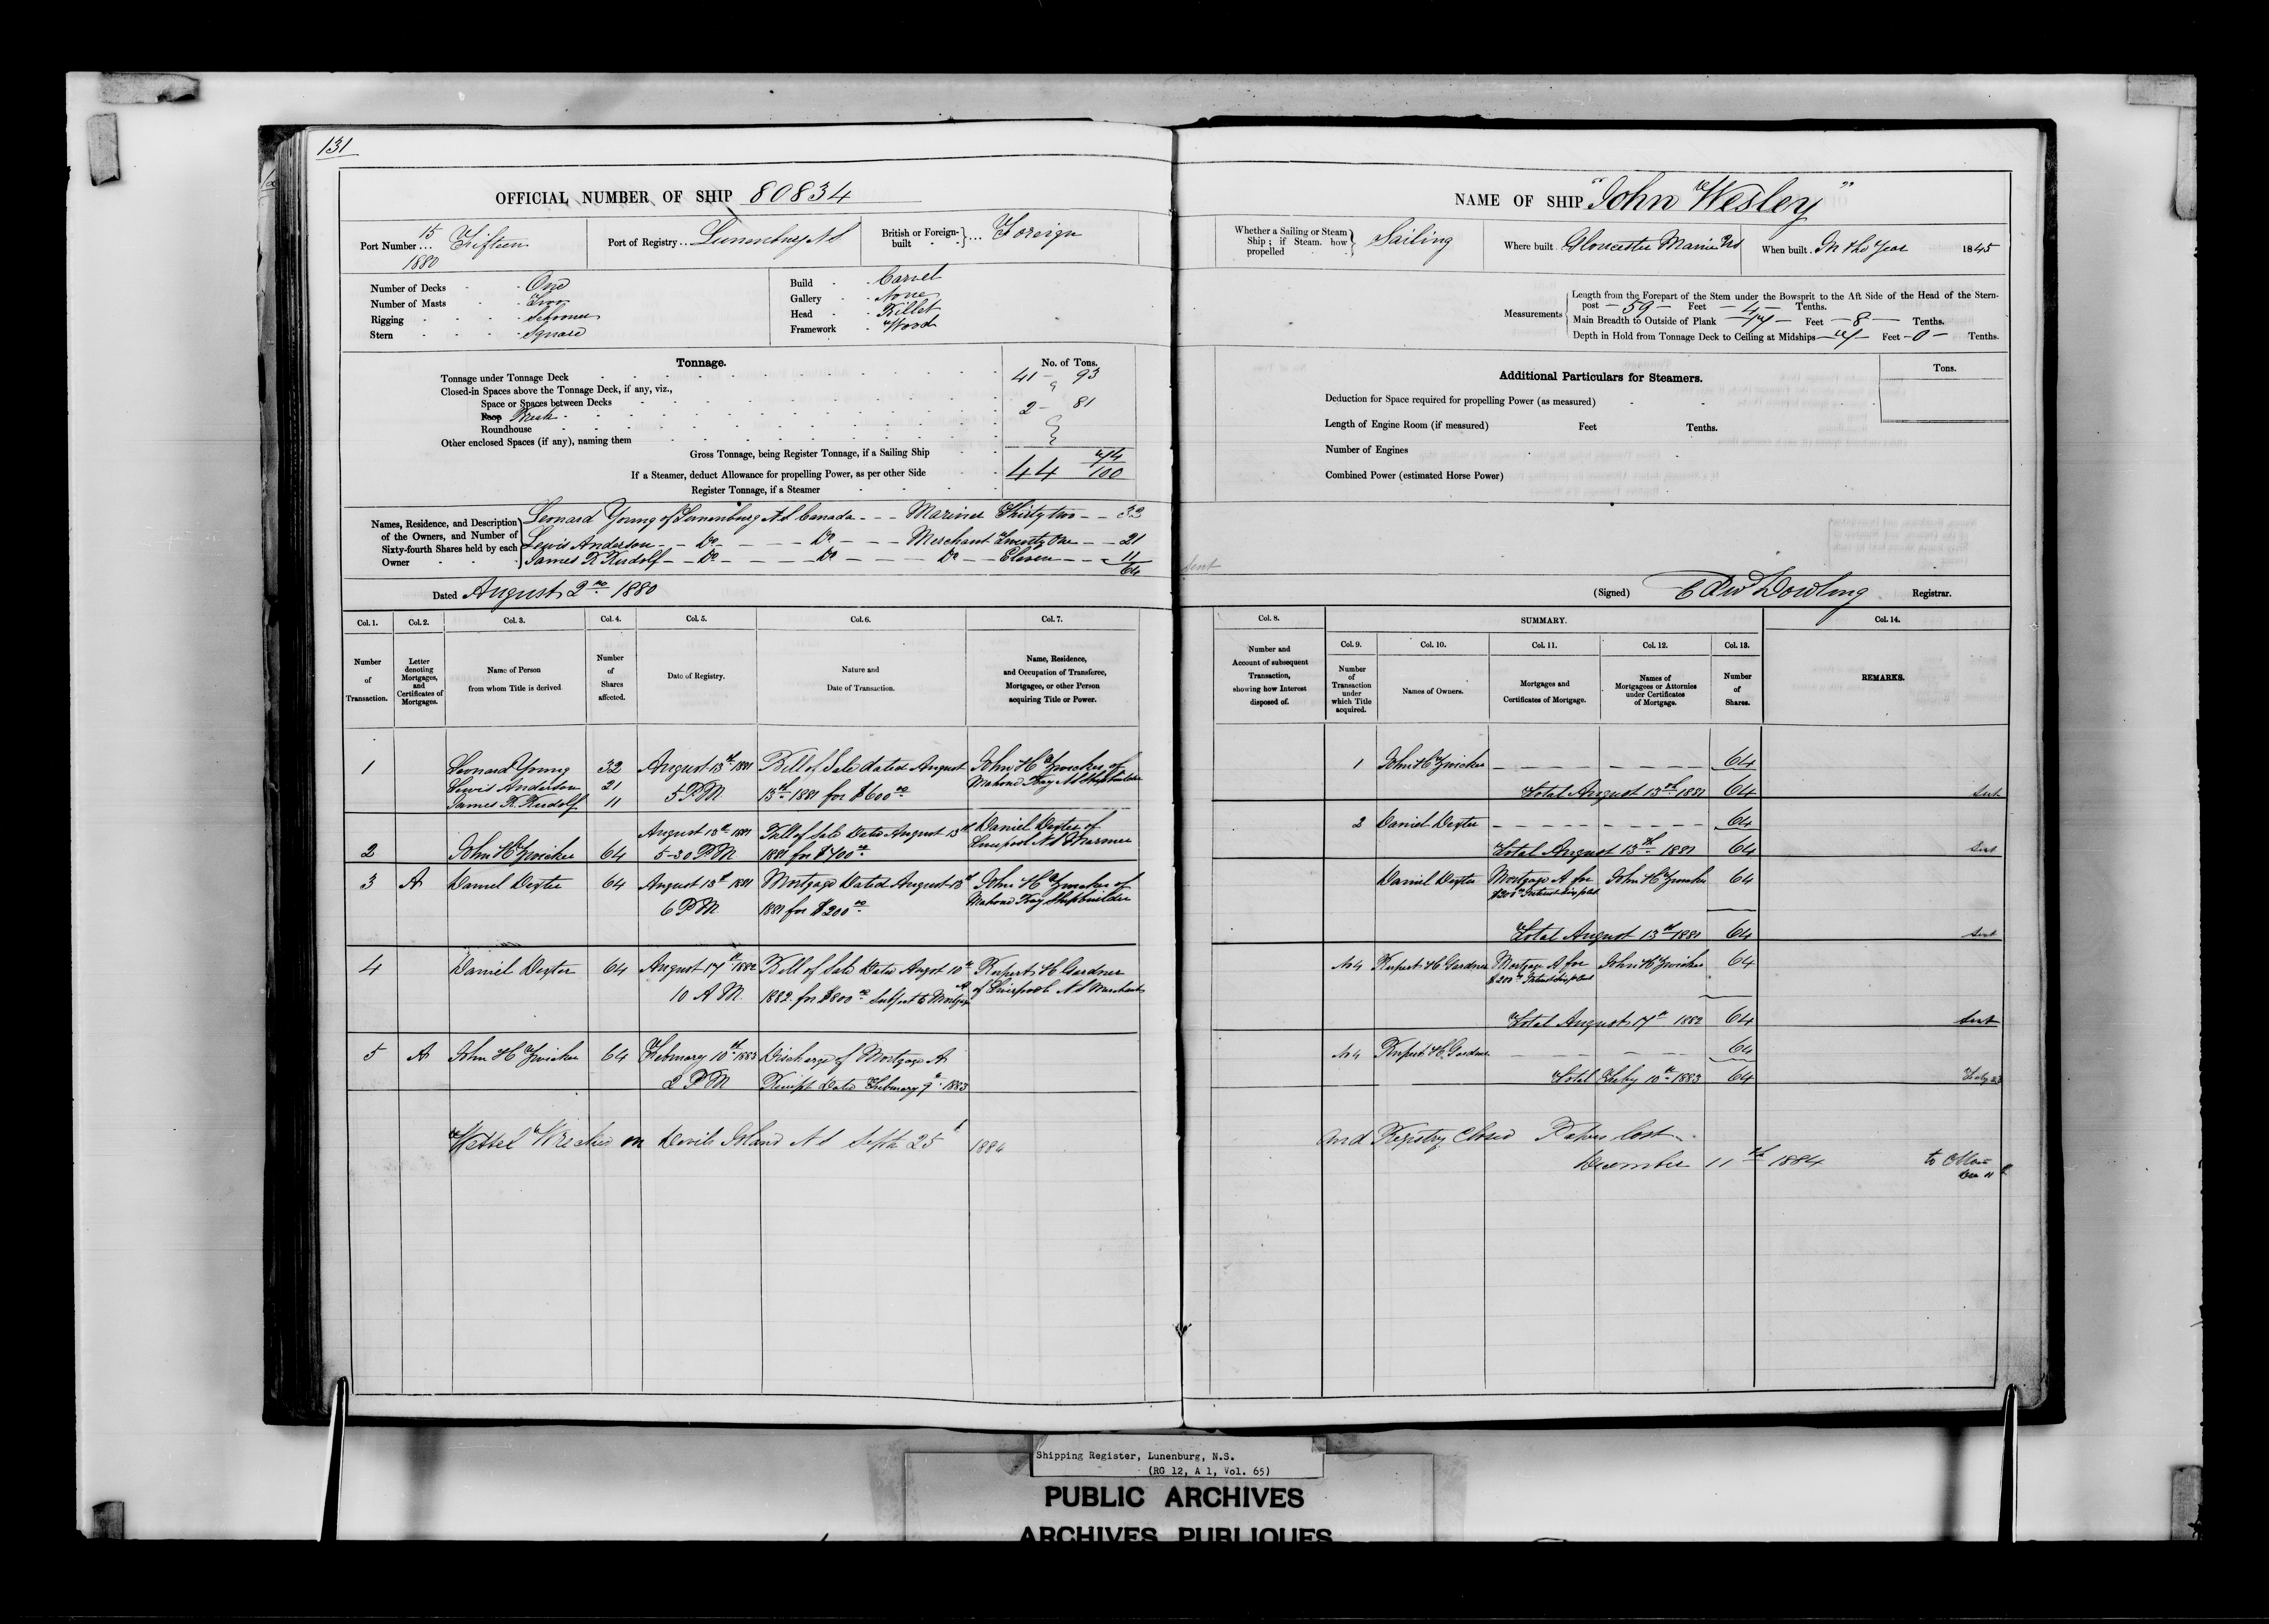 131
OFFICIAL NUMBER OF SHIP 80834
Port Number 15 Fifteen
1880
Port of Registry Lunenburg N S
British or Foreign-built Foreign
Number of Decks One
Number of Masts Two
Rigging Schooner
Stern Square
Build Carvel
Gallery None
Head Billet
Framework Wood
Tonnage.
No. of Tons.
Tonnage under Tonnage Deck 41 - 93
Closed-in Spaces above the Tonnage Deck, if any, viz.,
Space or Spaces between Decks
Poop 2 - 81
Roundhouse
Other enclosed Spaces (if any), naming them
Gross Tonnage, being Register Tonnage, if a Sailing Ship 44 74/100
If a Steamer, deduct Allowance for propelling Power, as per other Side
Register Tonnage, if a Steamer
Names, Residence, and Description of the Owners, and Number of Sixty-fourth Shares held by each Owner
Leonard Young of Lunenburg N S Canada - - - Mariner Thirty two - - 32
Lewis Anderson - - Do - - - - Do - - - Merchant Twenty One - - 21
James R Rudolf - - Do - - - - Do - - - Do - Eleven - - 11
64
Dated August 2nd 1880
Col. 1.
Number of Transaction.
Col. 2.
Letter denoting Mortgages, and Certificates of Mortgages.
Col. 3.
Name of Person from whom Title is derived
Col. 4.
Number of Shares affected.
Col. 5.
Date of Registry.
Col. 6.
Nature and Date of Transaction.
Col. 7.
Name, Residence, and Occupation of Transferee, Mortgagee, or other Person acquiring Title or Power.
1 Leonard Young 32 August 13th 1881 Bill of Sale dated August John H Zwicker of
Lewis Anderson 21 5 PM 13th 1881 for $600 00 Mahone Bay N S Shipbuilder
James R Rudolf 11
August 13th 1881 Bill of Sale Dated August 13th Daniel Dexter of
2 John H Zwicker 64 5-30 PM 1881 for $700 00 Liverpool N S Mariner
3 A Daniel Dexter 64 August 13th 1881 Mortgage Dated August 13th John H Zwicker of
6 PM 1881 for $200 00 Mahone Bay Shipbuilder
4 Daniel Dexter 64 August 17th 1882 Bill of Sale Dated Augst 10th Rupert H Gardner
10 A M 1882 for $800 00 Subject to Mortgage A of Liverpool N S Merchant
5 A John H Zwicker 64 February 10th 1883 Discharge of Mortgage A
2 P M Receipt Dated February 9th 1883
Vessel Wrecked on Devils Island N S Septr 25th 1884
NAME OF SHIP "John Wesley"
Whether a Sailing or Steam Ship; if Steam, how propelled Sailing
Where built Gloucester Maine
When built In the Year 1845
Measurements
Length from the Forepart of the Stem under the Bowsprit to the Aft Side of the Head of the Stern-
post - 59 - Feet - 4 - Tenths.
Main Breadth to Outside of Plank - 17 - Feet - 8 - Tenths.
Depth in Hold from Tonnage Deck to Ceiling at Midships - 7 - Feet - 0 - Tenths.
Additional Particulars for Steamers.
Tons.
Deduction for Space required for propelling Power (as measured)
Length of Engine Room (if measured) Feet Tenths.
Number of Engines
Combined Power (estimated Horse Power)
Sent
(Signed) Edw Dowling Registrar.
Col. 8.
Number and Account of subsequent Transaction, showing how Interest disposed of.
SUMMARY.
Col. 9.
Number of Transaction under which Title acquired.
Col. 10.
Names of Owners.
Col. 11.
Mortgages and Certificates of Mortgage.
Col. 12.
Names of Mortgagees or Attornies under Certificates of Mortgage.
Col. 13.
Number of Shares.
Col. 14.
REMARKS.
1 John H Zwicker - - - - - - 64
Total August 13th 1881 64 Sent
2 Daniel Dexter - - - - - - 64
Total August 13th 1881 64 Sent
Daniel Dexter Mortgage A for John H Zwicker 64
Total August 13th 1881 64 Sent
No 4 Rupert H Gardner Mortgage A for John H Zwicker 64
Total August 17th 1882 64 Sent
No 4 Rupert H Gardner - - - - - 64
Total Feby 10th 1883 64
and Registry Closed Papers lost
December 11th 1884
Shipping Register, Lunenburg, N.S.
(RG 12, A 1, Vol. 65)
PUBLIC ARCHIVES
ARCHIVES PUBLIQUES